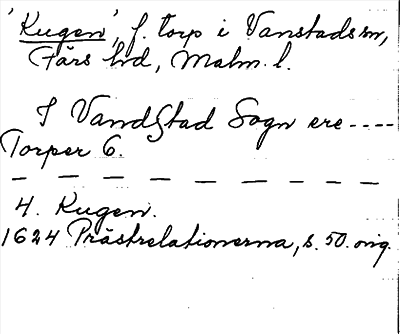 'Kugen', f. torp i Vanstads sn,
Färs hd, Malm. l.
I Vandstad Sogn ere ----
Torper 6.
— — — — — — — — —
4. Kugen.
1624 Prästrelationerna, s. 50. orig.